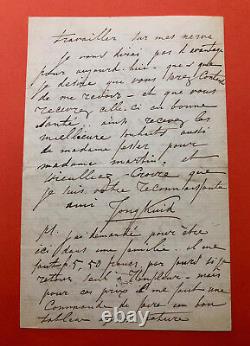 travailler sur mes nerve
Je vous dirai pas d'avantage
pour aujourd-hui - que
je désire que vous
de me revoir - et que vous
recevrez celle-ci en bonne
santé - ainsi recevez les
meilleure souhaits aussi
de madame fesser pour
madame martin, et
veuilliez - croire que
je suis votre reconnaissant
ami Jongkind
ps. j'ai demandé pour être
ici dans une famille - il me
faut 5, 50 francs par jour si je
retour seul à Honfleur - mais
pour ces prix il me faut une
Commande de faire un bon
tableau nature